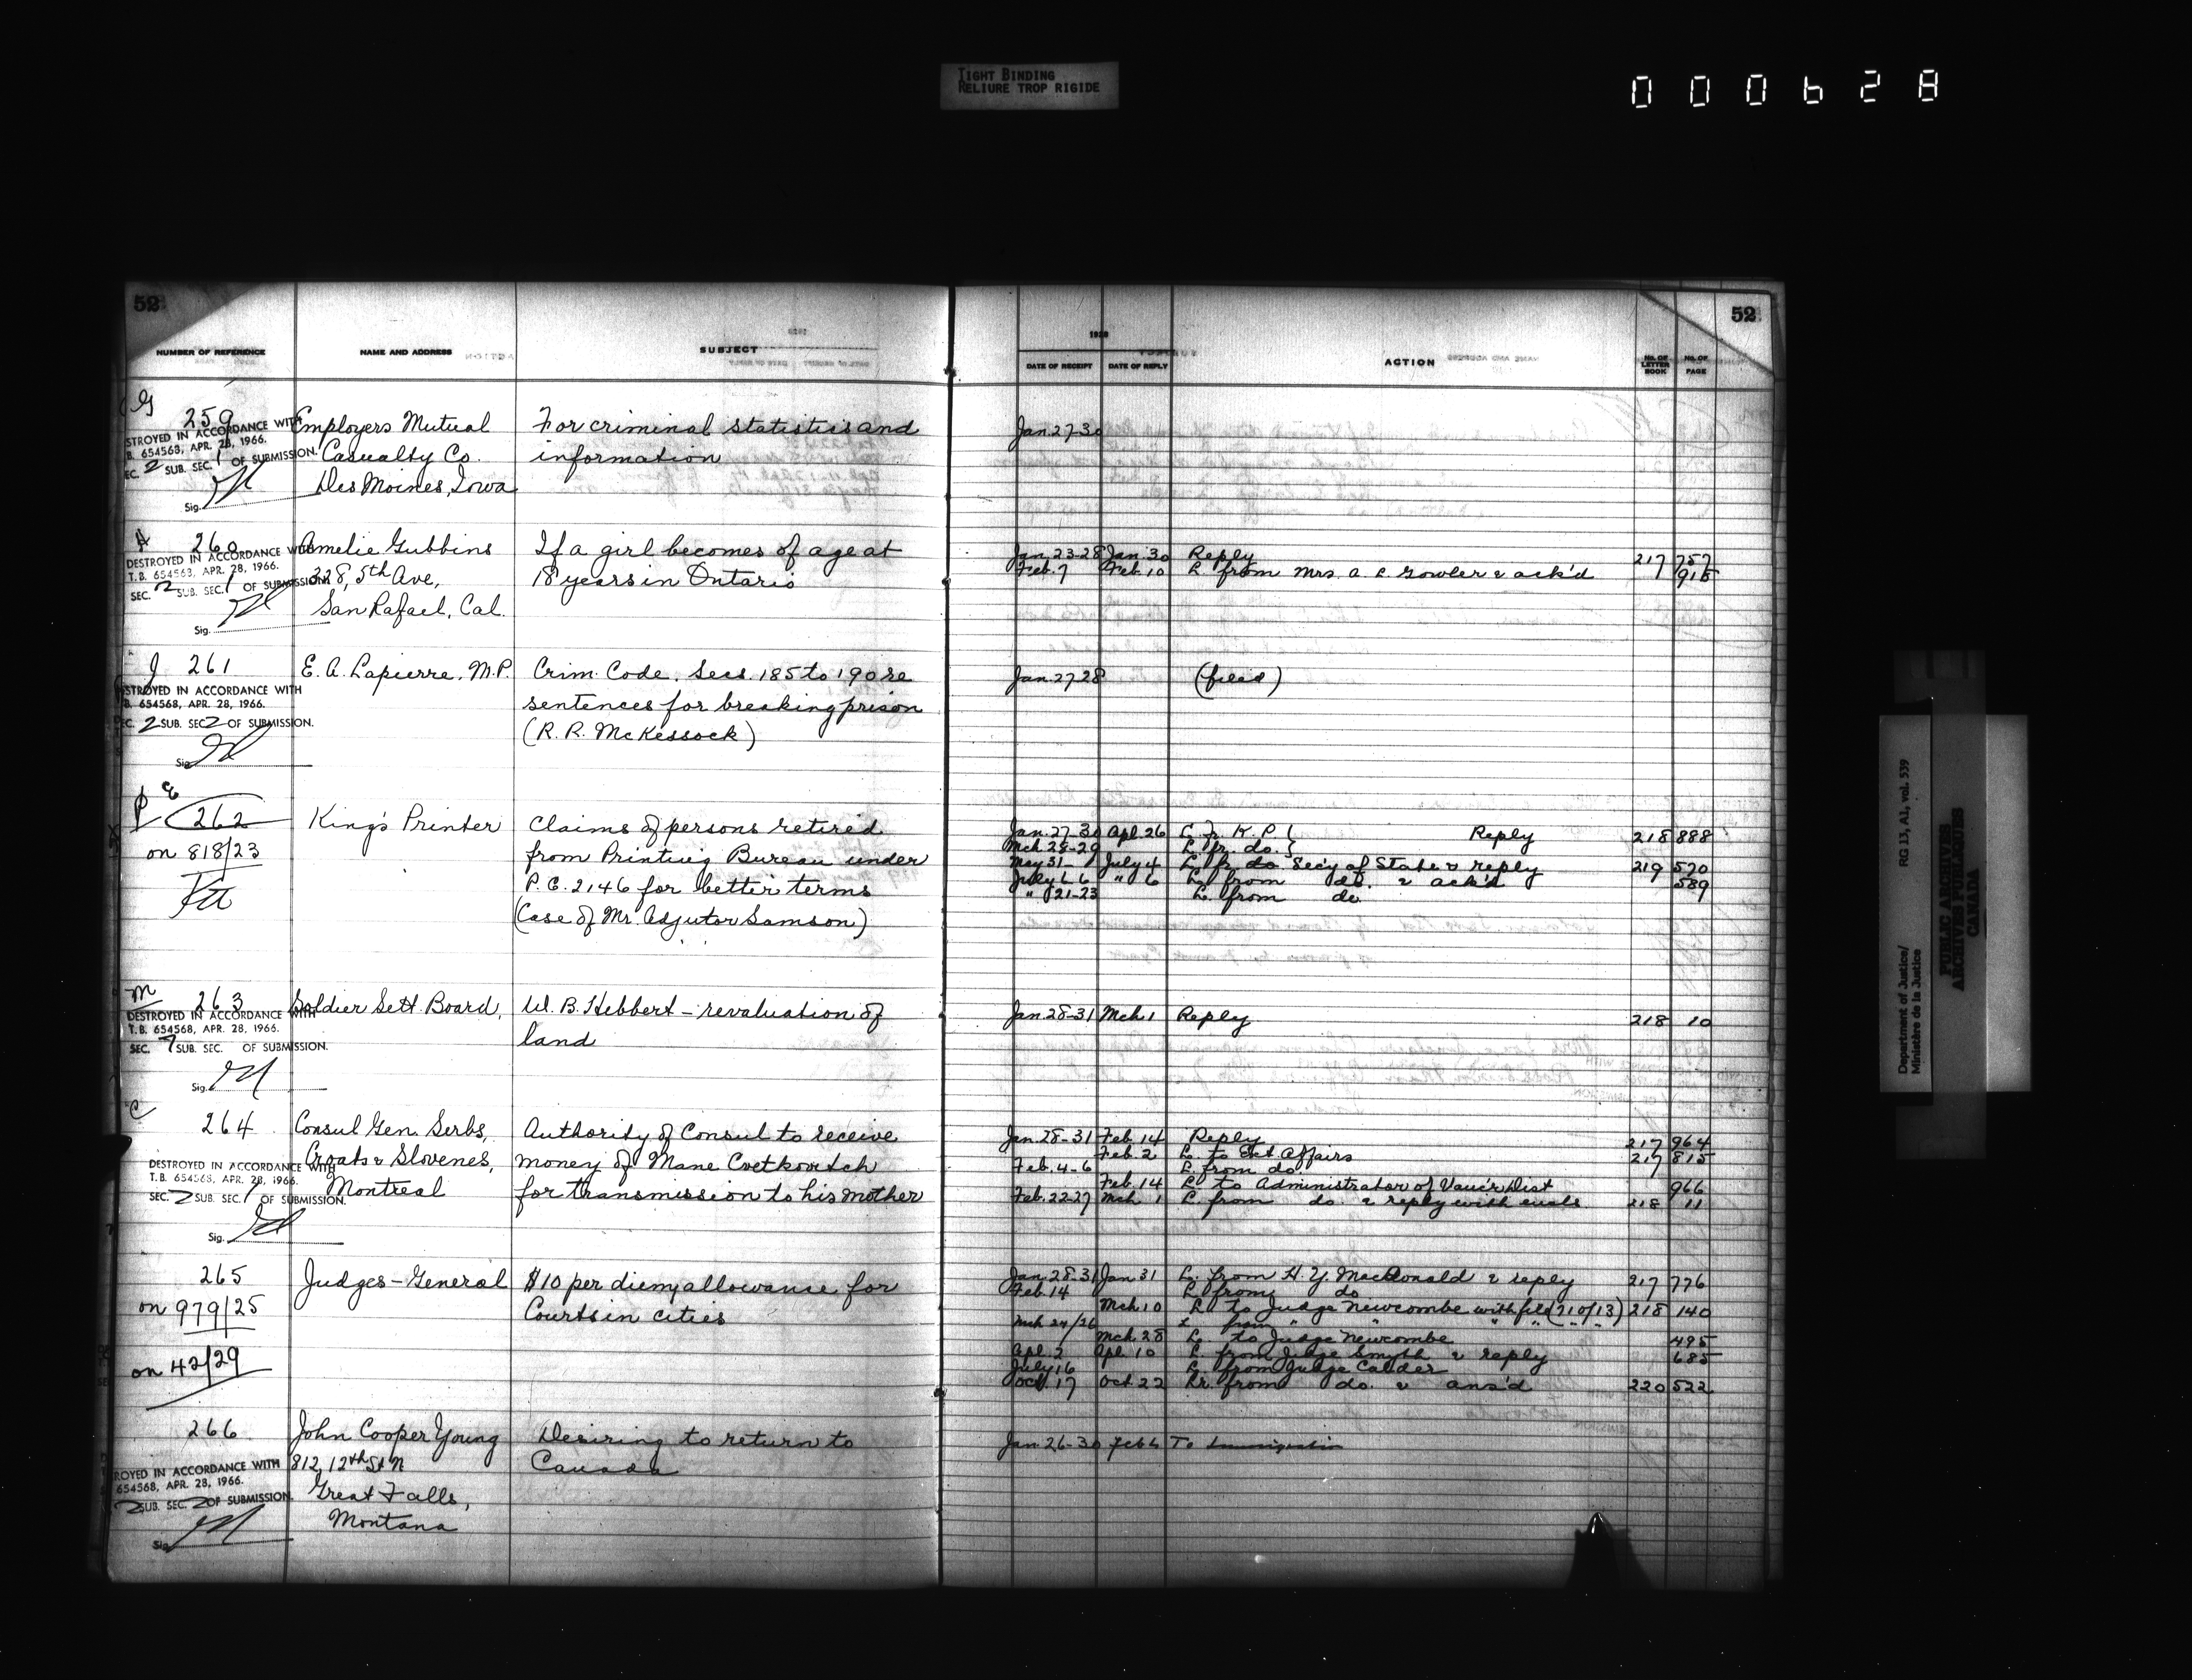 TIGHT BINDING
RELIURE TROP RIGIDE
000628
52
NUMBER OF REFERENCE NAME AND ADDRESS SUBJECT
G
259 Employers Mutual For criminal statistics and
STROYED IN ACCORDANCE WITH
B. 654568, APR. 28, 1966.
EC. 2 SUB. SEC. 1 OF SUBMISSION.
Casualty Co. information
Des Moines, Iowa
Sig.
260 Amelie Gubbins If a girl becomes of age at
DESTROYED IN ACCORDANCE WITH
T.B. 654563, APR. 28, 1966.
SEC. 2 SUB. SEC. 1 OF SUBMISSION.
228, 5th Ave, 18 years in Ontario
San Rafael, Cal.
Sig.
J 261 E. A. Lapierre, M.P. Crim. Code. Secs. 185 to 190 re
STROYED IN ACCORDANCE WITH
B. 654568, APR. 28, 1966.
EC. 2 SUB. SEC 2 OF SUBMISSION.
sentences for breaking prison
(R. R. McKessock)
Sig.
P E
262 King's Printer Claims of persons retired
on 818/23 from Printing Bureau under
P.C. 2146 for better terms
(Case of Mr. Adjutor Samson)
M
263 Soldier Sett Board, W. B. Hebbert – revaluation of
DESTROYED IN ACCORDANCE WITH
T.B. 654568, APR. 28, 1966.
SEC. 7 SUB. SEC. OF SUBMISSION.
land
Sig.
C
264 Consul Gen. Serbs, Authority of Consul to receive
Croats & Slovenes, money of Mane Cvetkovitch
DESTROYED IN ACCORDANCE WITH
T.B. 654568, APR. 28, 1966.
SEC. 2 SUB. SEC. 1 OF SUBMISSION.
Montreal for transmission to his mother
Sig.
265 Judges – General $10 per diem allowance for
on 979/25 Courts in cities
on 42/29
266 John Cooper Young Desiring to return to
812, 12th St N Canada
ROYED IN ACCORDANCE WITH
654568, APR. 28, 1966.
2 SUB. SEC. 2 OF SUBMISSION.
Great Falls,
Montana
Sig.
52
1928
DATE OF RECEIPT DATE OF REPLY ACTION No. OF LETTER BOOK No. OF PAGE
Jan. 27-30
Jan. 23-28 Jan. 30 Reply 217 757
Feb. 7 Feb. 10 L. from Mrs. A. L. Gowler & ack'd 915
Jan. 27 28 (filed)
Jan. 27-30 Apl. 26 L. fr. K. P. { Reply 218 888
Mch 28-29 L. fr. do. }
May 31- July 4 L. fr. do Sec'y of State & reply 219 570
July 6-6 " 6 L. from do. & ack'd 589
" 21-23 L. from do
Jan. 28-31 Mch 1 Reply 218 10
Jan. 28-31 Feb. 14 Reply 217 964
Feb. 2 L. to Ext. Affairs 217 815
Feb. 4-6 L. from do.
Feb. 14 L. to Administrator of Vanc'r Dist 966
Feb. 22-27 Mch 1 L. from do. & reply with encls. 218 11
Jan. 28-31 Jan 31 L. from H. Y. MacDonald & reply 217 776
Feb. 14 L. from do
Mch 10 L. to Judge Newcombe with file (210/13) 218 140
Mch 24/26 L. from " " " ( " / " )
Mch 28 L. to Judge Newcombe 495
Apl. 2 Apl. 10 L. from Judge Smyth & reply 685
July 16 L. from Judge Calder
Oct. 17 Oct 22 Lr. from do. & ans'd 220 522
Jan. 26-30 Feb 4 To Immigration
Department of Justice/
Ministère de la Justice
RG 13, A1, vol. 539
PUBLIC ARCHIVES
ARCHIVES PUBLIQUES
CANADA